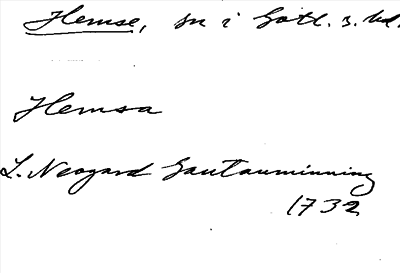 Hemse, sn i Gotl. s. hd.
Hemsa
L. Neogard Gautauminning
1732